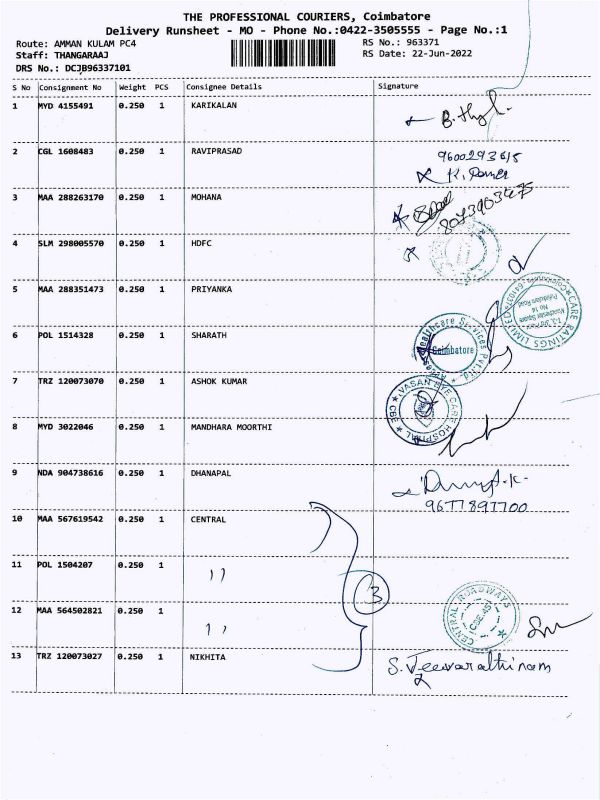 THE PROFESSIONAL COURIERS, Coimbatore
Delivery Runsheet - MO - Phone No.:0422-3505555 - Page No.:1
Route: AMMAN KULAM PC4 RS No.: 963371
Staff: THANGARAAJ RS Date: 22-Jun-2022
DRS No.: DCJB96337101
S No Consignment No Weight PCS Consignee Details Signature
1 MYD 4155491 0.250 1 KARIKALAN
2 CGL 1608483 0.250 1 RAVIPRASAD 9600293615
3 MAA 288263170 0.250 1 MOHANA 8073903475
4 SLM 298005570 0.250 1 HDFC
5 MAA 288351473 0.250 1 PRIYANKA
CARE RATINGS LIMITED
6 POL 1514328 0.250 1 SHARATH
Healthcare Services Pvt Ltd.
Coimbatore
7 TRZ 120073070 0.250 1 ASHOK KUMAR
VASAN EYE CARE HOSPITAL CBE
8 MYD 3022046 0.250 1 MANDHARA MOORTHI
9 NDA 904738616 0.250 1 DHANAPAL
9677897700
10 MAA 567619542 0.250 1 CENTRAL
11 POL 1504207 0.250 1 ))
3
12 MAA 564502821 0.250 1 ))
CENTRAL ROADWAYS
CBE-45
13 TRZ 120073027 0.250 1 NIKHITA S. Jeevarathinam